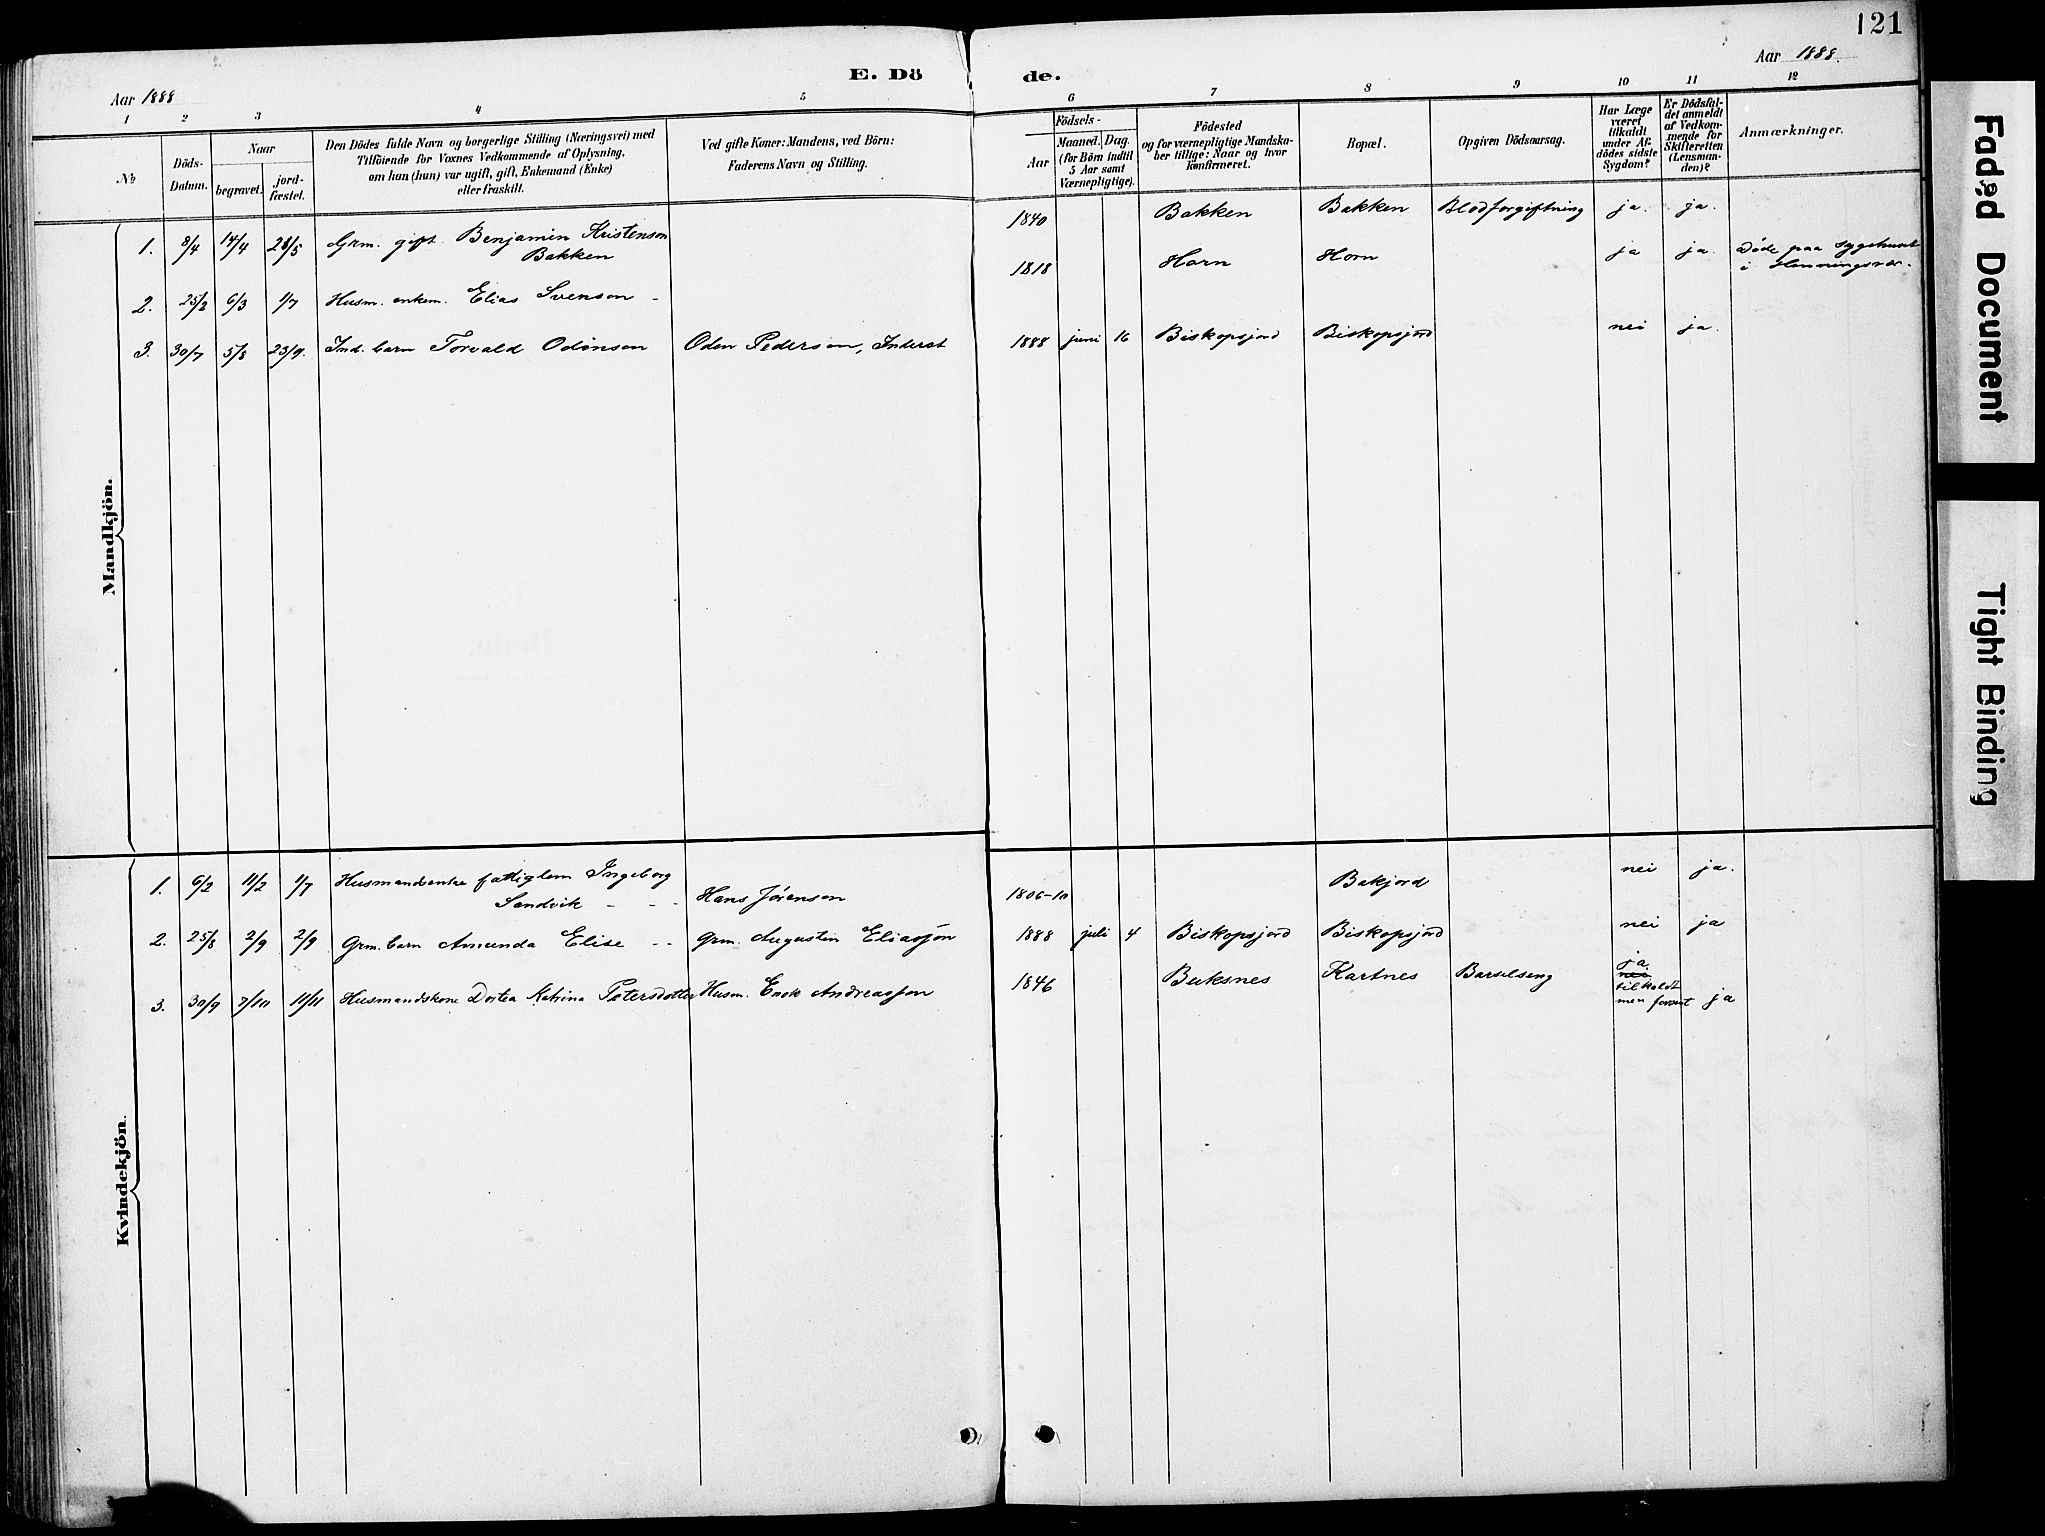 121
E. Döde.
Aar 1888
Aar 1888.
1 2 3 4 5 6 7 8 9 10 11 12
No
Döds-Datum.
Naar
begravet.
jord-fæstet.
Den Dödes fulde Navn og borgerlige Stilling (Næringsvei) med
Tilföiende for Voxnes Vedkommende af Oplysning,
om han (hun) var ugift, gift, Enkemand (Enke)
eller fraskilt.
Ved gifte Koner: Mandens, ved Börn:
Faderens Navn og Stilling.
Födsels-
Aar
Maaned. Dag.
(for Börn indtil
5 Aar samt
Værnepligtige).
Födested
og for værnepligtige Mandska-
ber tillige: Naar og hvor
konfirmeret.
Bopæl.
Opgiven Dödsaarsag.
Har Læge
været
tilkaldt
under Af-
dödes sidste
Sygdom?
Er Dödsfal-
det anmeldt
af Vedkom-
mende for
Skifteretten
(Lensman-
den)?
Anmærkninger.
Mandkjön.
1. 8/4 14/4 28/5 Grm. gift Benjamin Kristenson
Bakken
1840 Bakken Bakken Blodforgiftning ja. ja.
2. 25/2 6/3 1/7 Husm. enkem. Elias Svenson -
1818 Horn Horn ja ja. Döde paa Sygehuset
i Henningsvær.
3. 30/7 5/8 23/9. Ind. barn Torvald Odinson Oden Pederson, Inderst 1888 juni 16 Biskopsjord Biskopsjord nei ja.
Kvindekjön.
1. 6/2 11/2 1/7 Husmandsenke fattiglem Ingeborg
Sandvik - - - Hans Jørenson 1806-10 Bakjord nei ja.
2. 25/8 2/9 2/9 Grm. barn Amunda Elise - - Grm. Augustin Eliasson 1888 juli 4 Biskopsjord Biskopsjord nei ja
3. 30/9 7/10 11/11 Husmandskone Dortea Katrina Petersdotter Husm. Enok Andreasson 1846 Buksnes Kartnes Barselseng ja
nei
tilkaldt
men forsent ja
Faded Document
Tight Binding